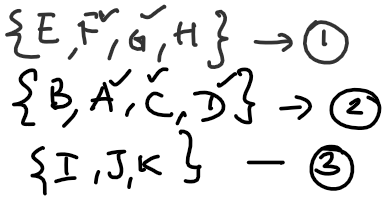 {E, F✓, G✓, H} → ①
{B, A✓, C✓, D✓} → ②
{I, J, K} — ③